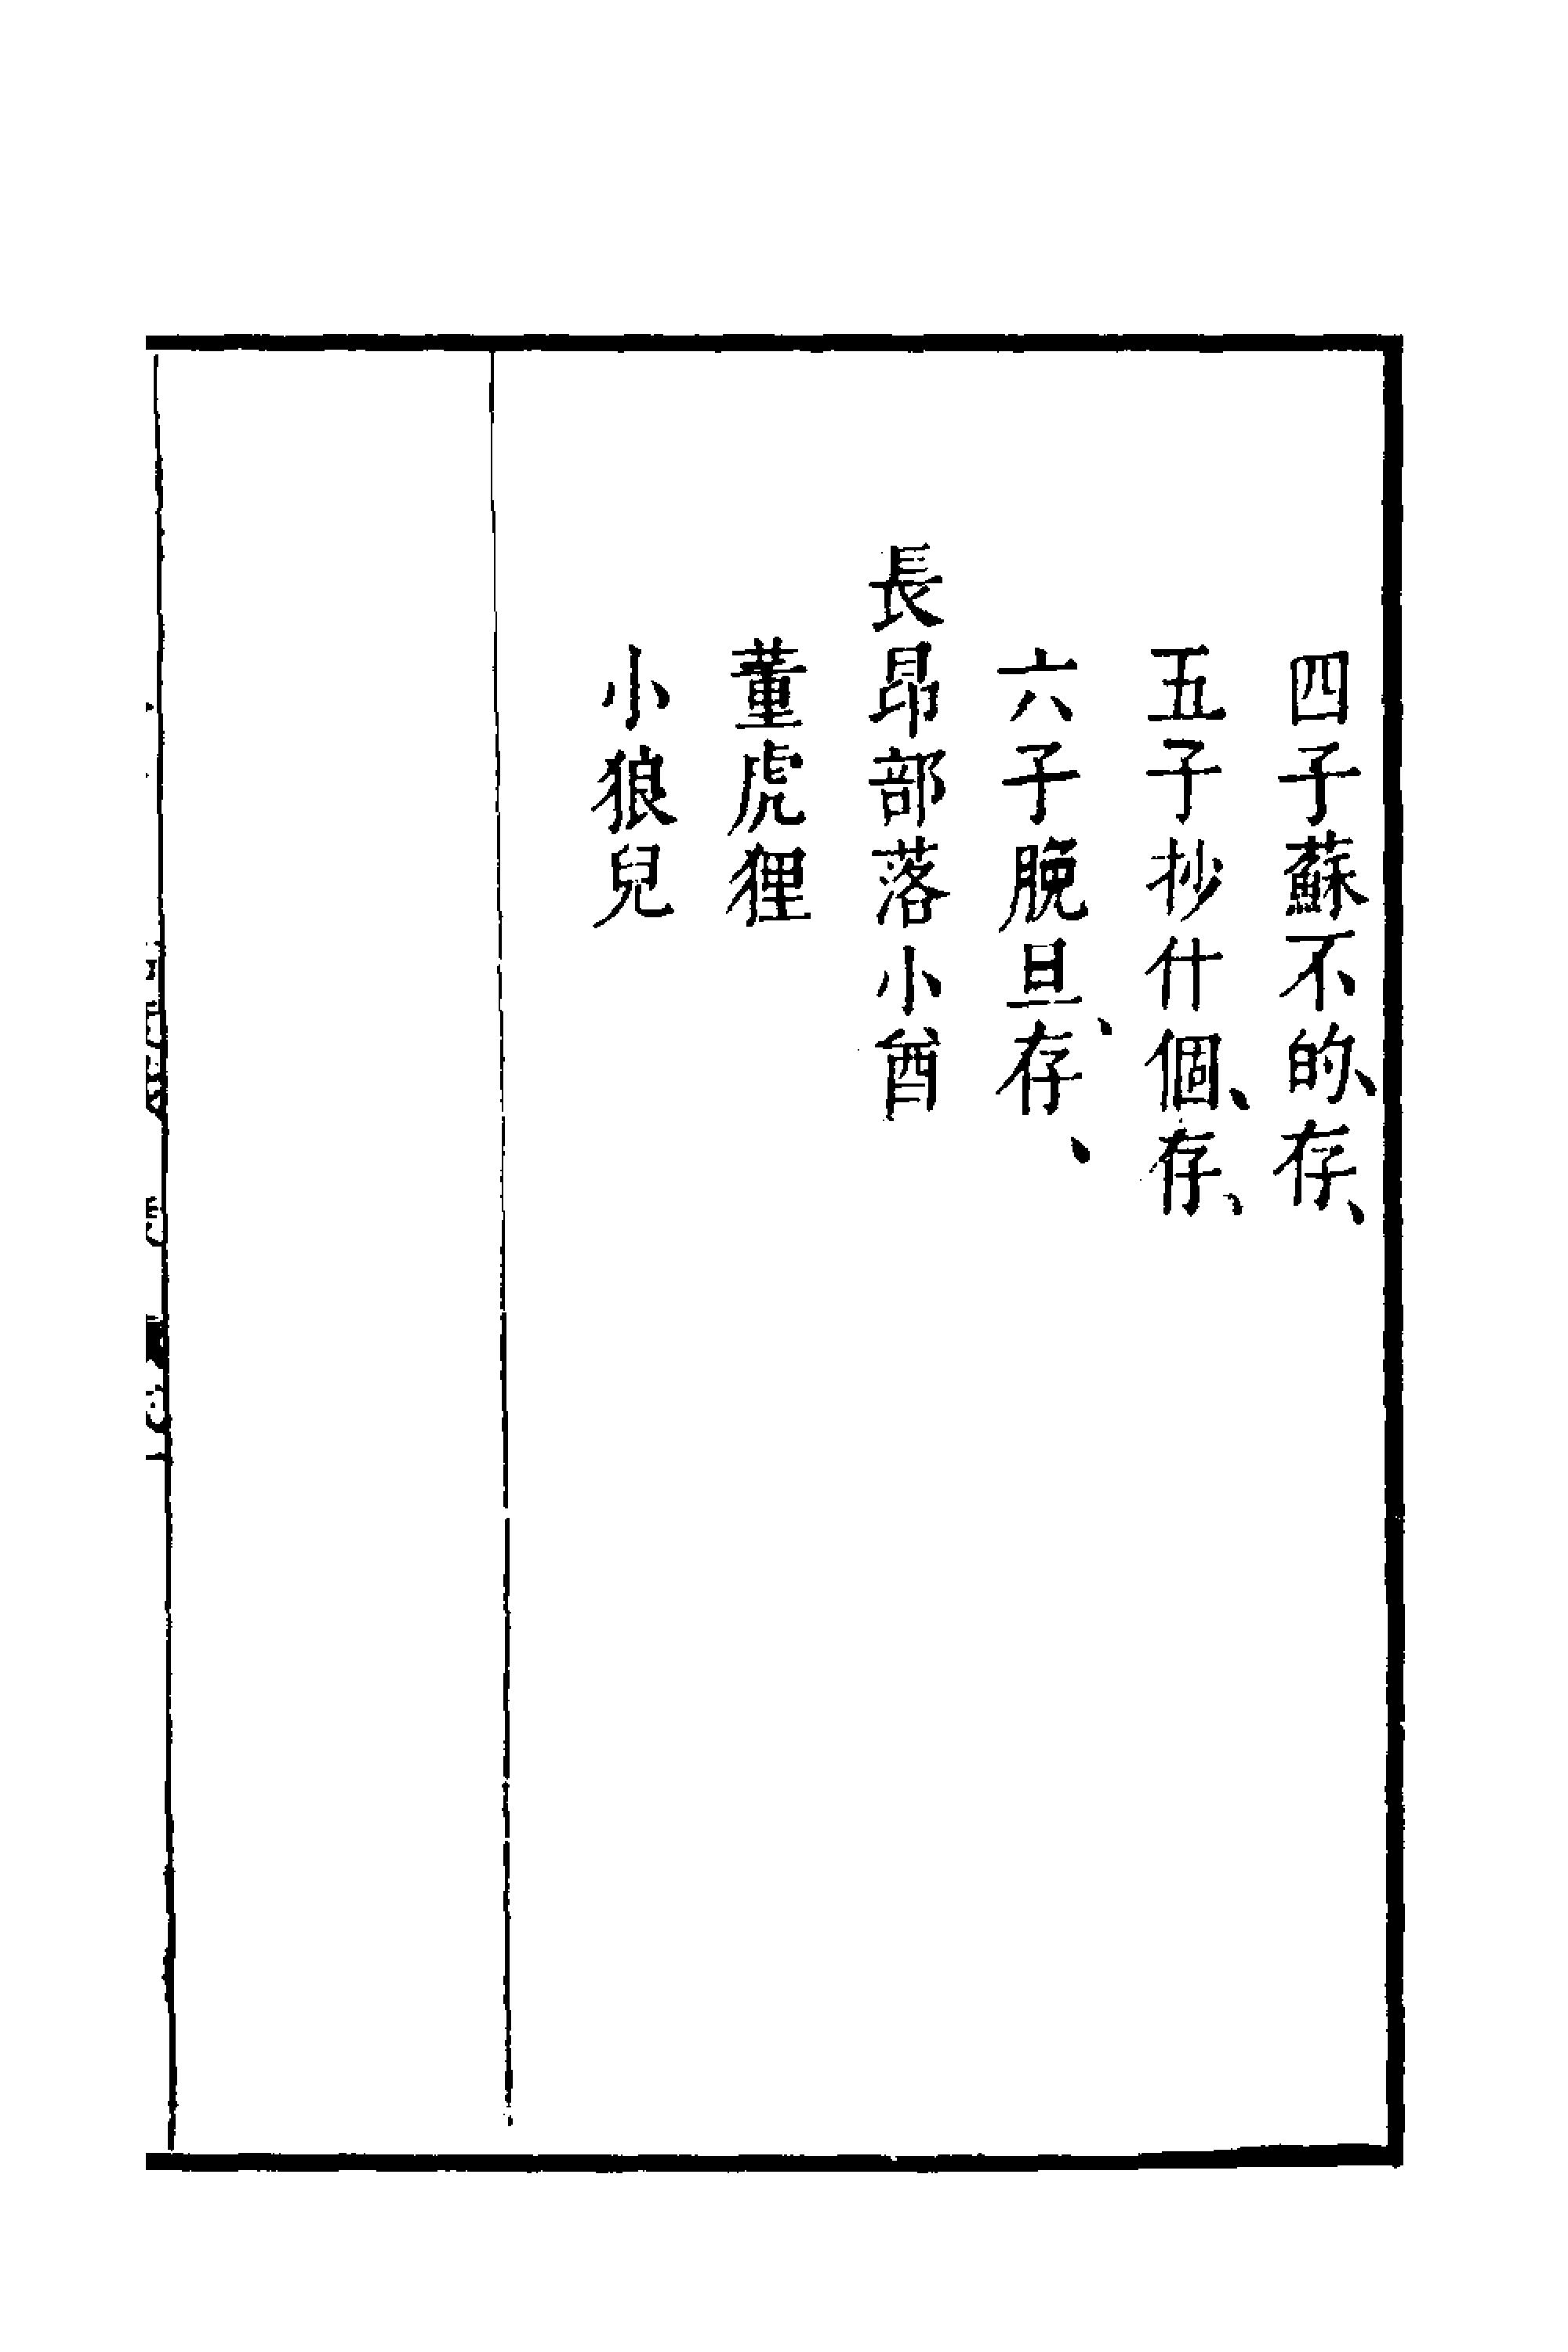 四子蘇不的、存、
五子抄什個、存、
六子脕旦、存、
長昂部落小酋
董虎狸
小狼兒